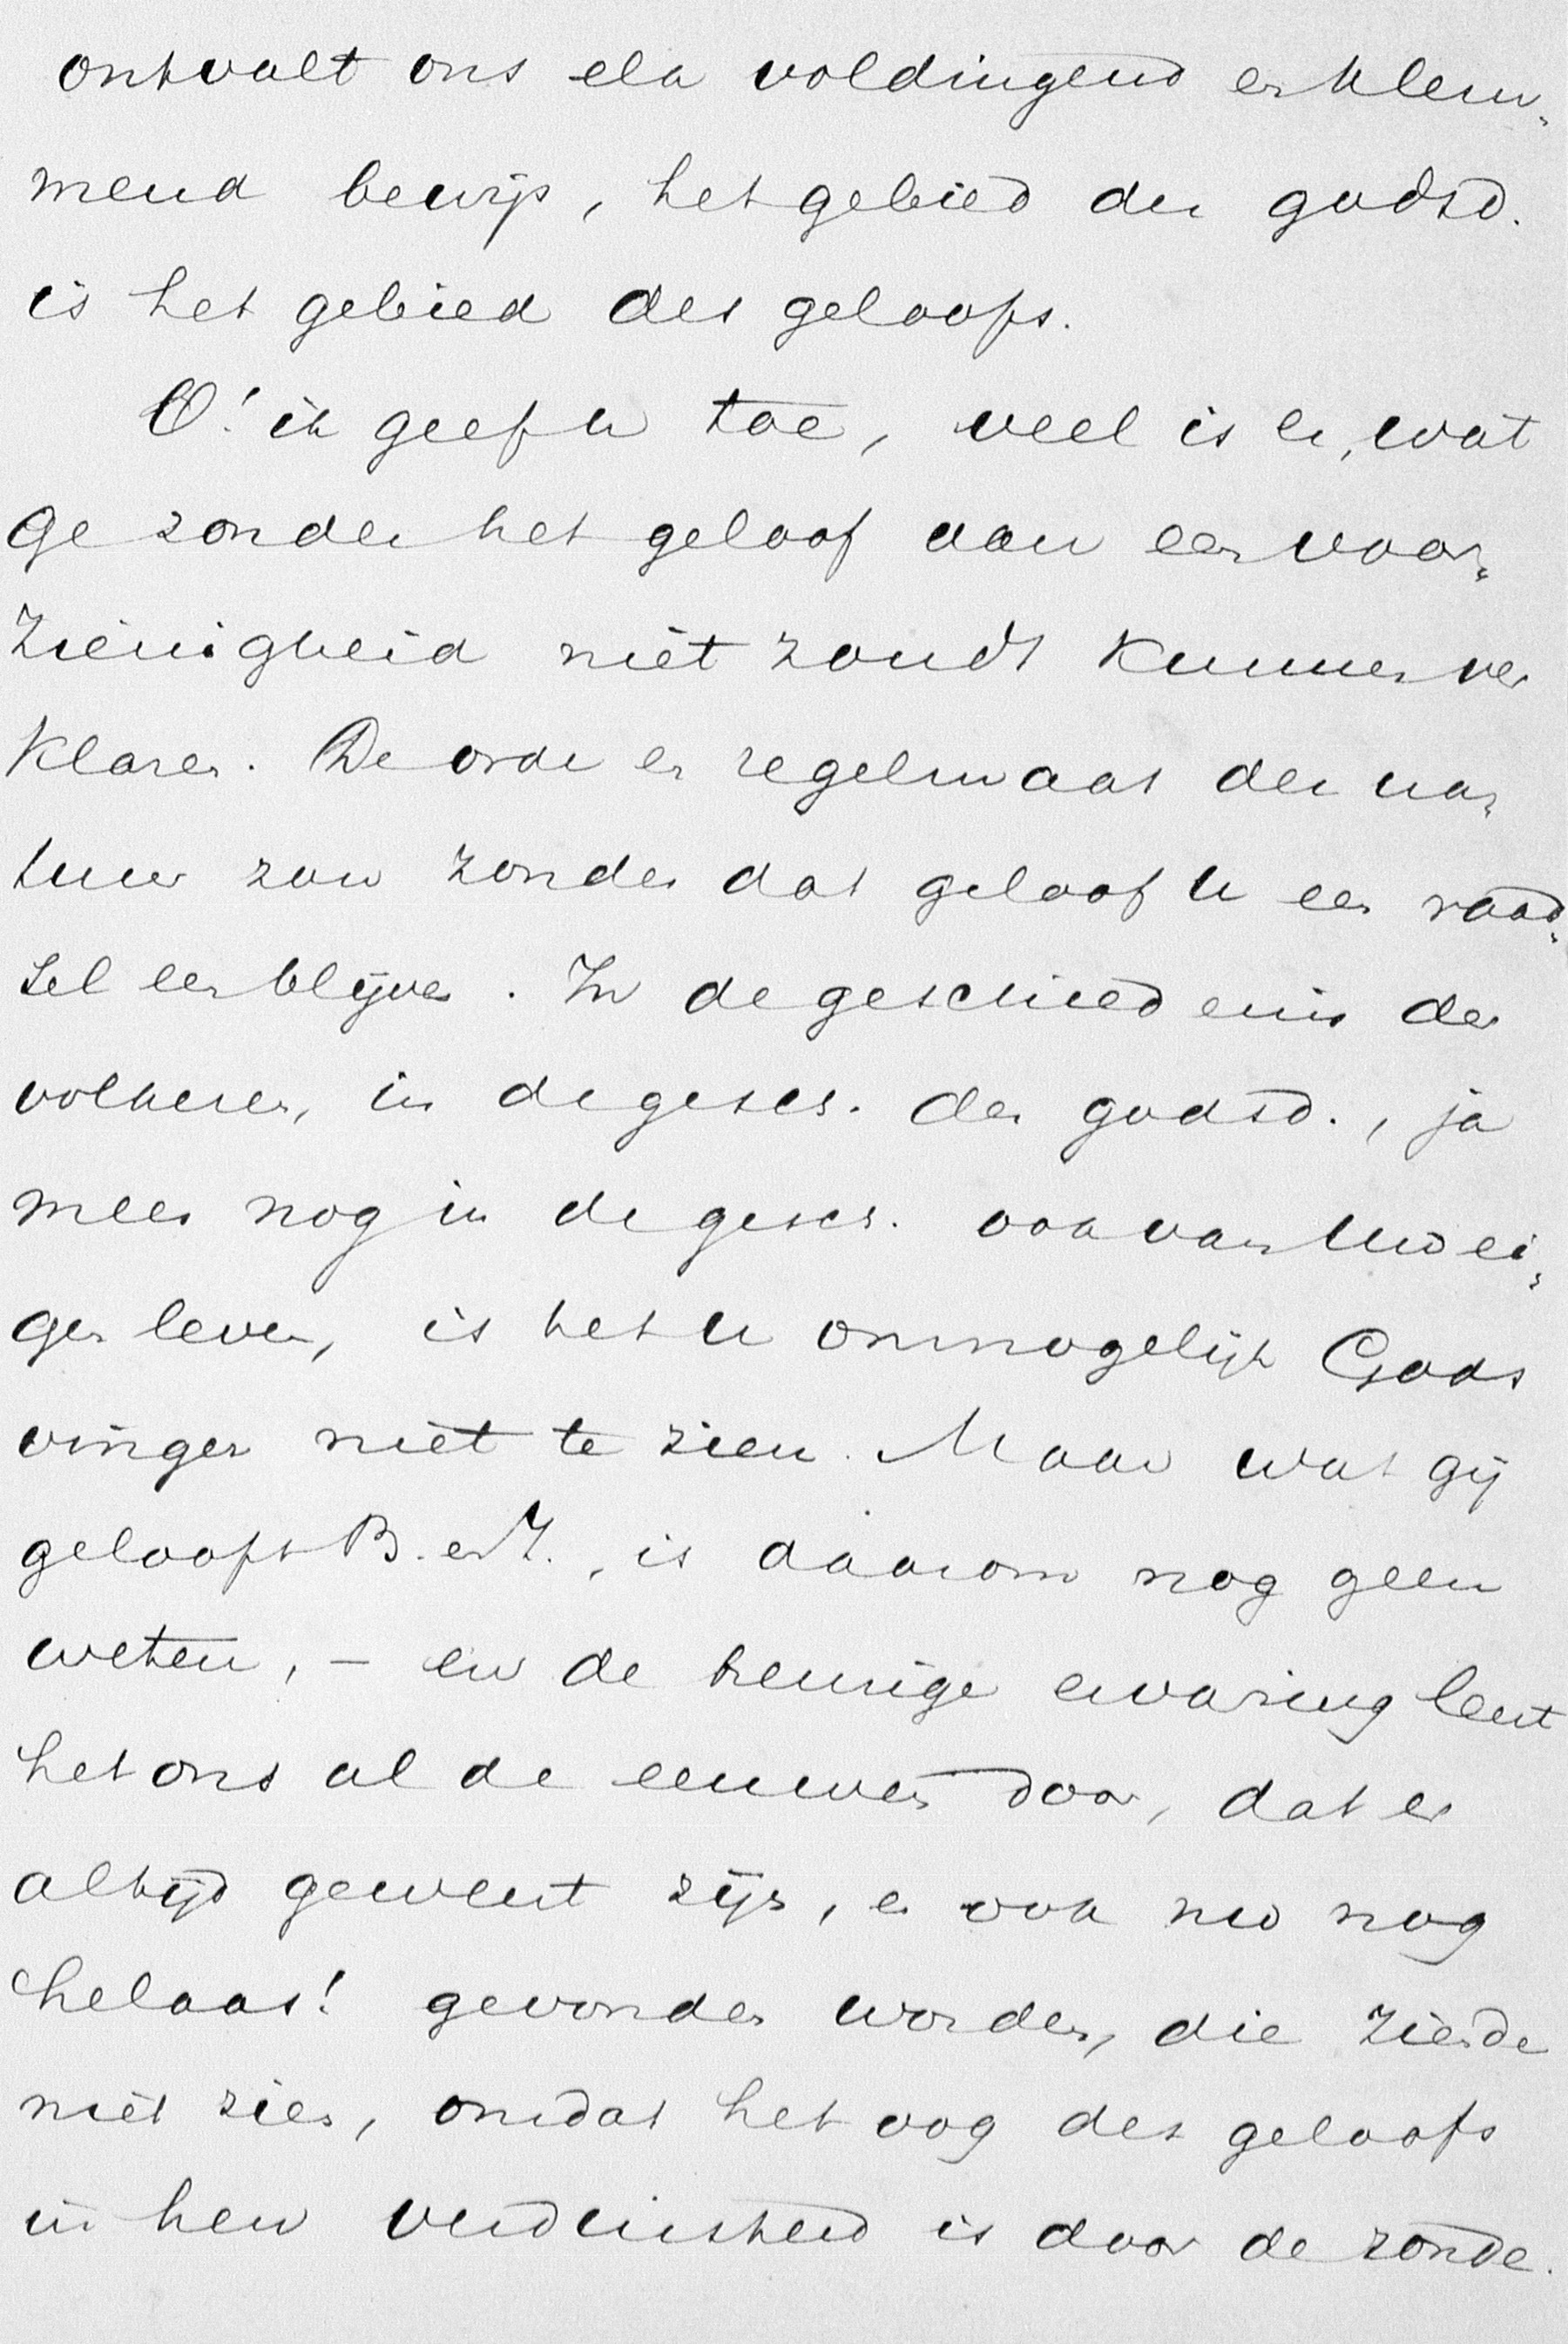 ontvalt ons elk voldingend en klem-
mend bewijs, het gebied der godsd.
is het gebied des geloofs.
O! ik geef u toe, veel is er, wat
ge zonder het geloof aan een voor-
zienigheid niet zoudt kunnen ver
klaren. De orde en regelmaat der na-
tuur zou zonder dat geloof u een raad-
sel een blijven. In de geschiedenis der
volkeren, in de gesch. der godsd., ja
meer nog in de gesch. ook van uw ei-
gen leven, is het u onmogelijk Gods
vinger niet te zien. Maar wat gij
gelooft B. en Z., is daarom nog geen
weten, – en de treurige ervaring leert
het ons al de eeuwen door, dat er
altijd geweest zijn, en ook nu nog
helaas! gevonden worden, die ziende
niet zien, omdat het oog des geloofs
in hen verduisterd is door de zonde.